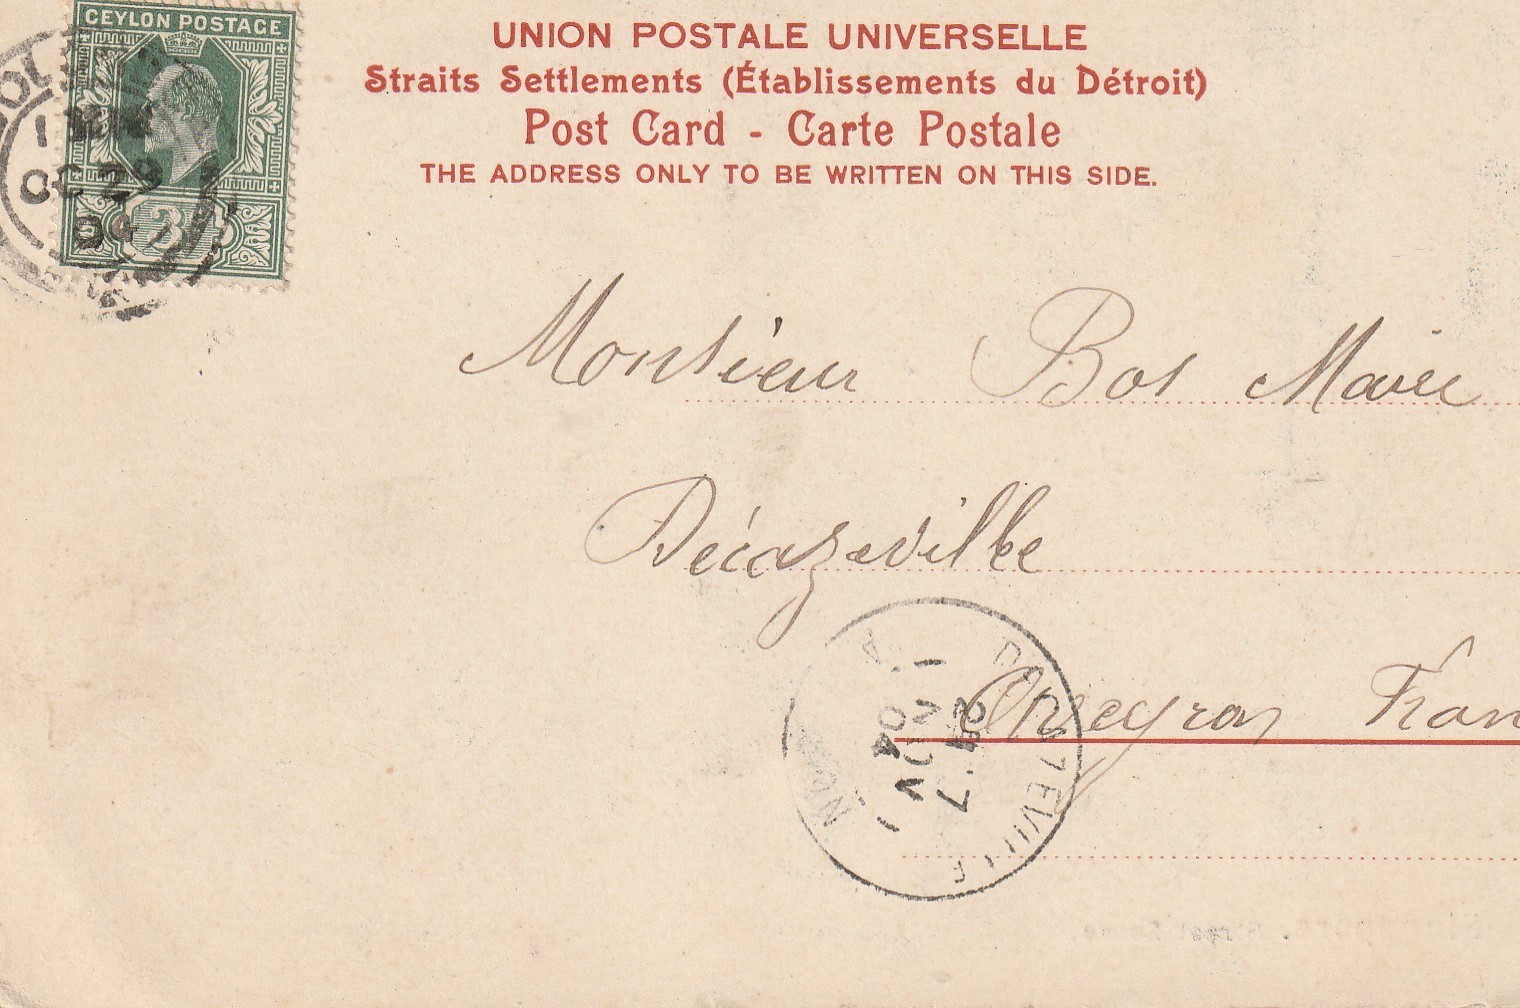 CEYLON POSTAGE
3
OC 29
04
UNION POSTALE UNIVERSELLE
Straits Settlements (Établissements du Détroit)
Post Card - Carte Postale
THE ADDRESS ONLY TO BE WRITTEN ON THIS SIDE.
Monsieur Bos
Décazeville
Aveyron Fran
DECAZEVILLE
7
NOV
04